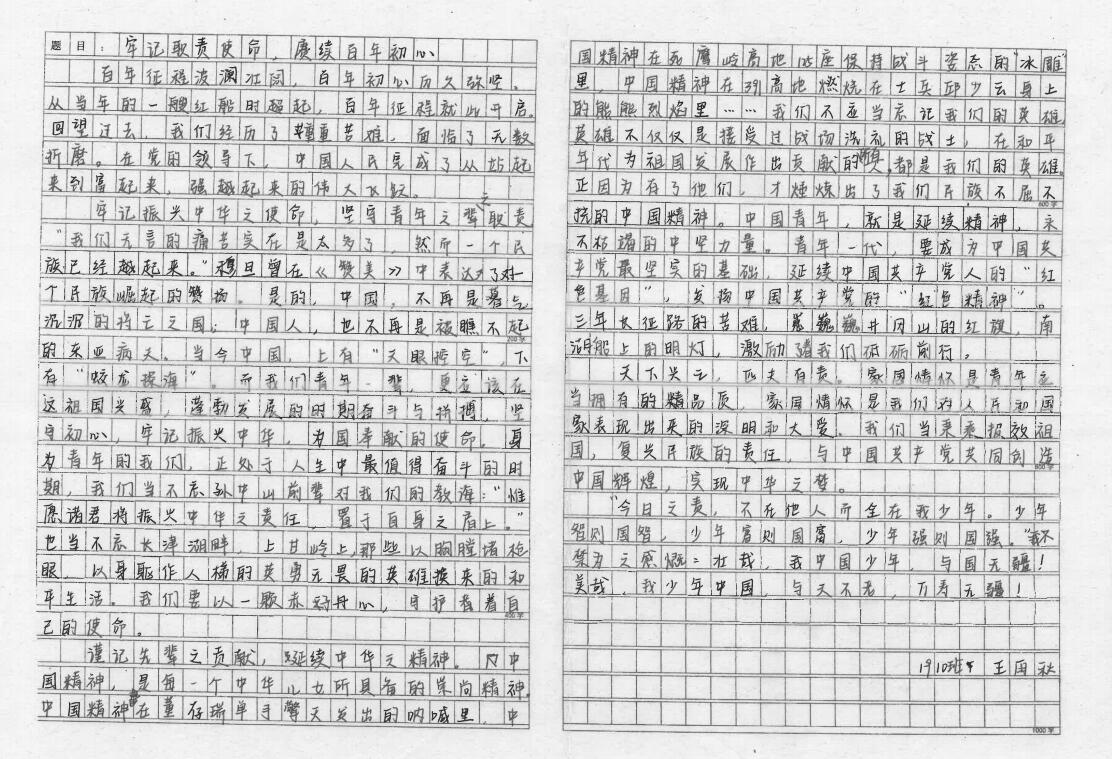 题目：牢记职责使命，赓续百年初心
百年征程波澜壮阔，百年初心历久弥坚。
从当年的一艘红船时越起，百年征程就此开启。
回望过去，我们经历了重重苦难，面临了无数
折磨。在党的领导下，中国人民完成了从站起
来到富起来，强越起来的伟大飞跃。
牢记振兴中华之使命，坚守青年之辈之职责
"我们无言的痛苦实在是太多了，然而一个民
族已经越起来。"穆旦曾在《赞美》中表达了对一
个民族崛起的赞扬。是的，中国，不再是暮气
沉沉的将亡之国；中国人，也不再是被瞧不起
200字
的东亚病夫。当今中国，上有"天眼控空"，下
有"蛟龙探海"。而我们青年一辈，更应该在
这祖国兴盛，蓬勃发展的时期奋斗与拼搏，坚
守初心，牢记振兴中华，为国奉献的使命。身
为青年的我们，正处于人生中最值得奋斗的时
期，我们当不忘孙中山前辈对我们的教诲："惟
愿诸君将振兴中华之责任，置于自身之肩上。"
也当不忘长津湖畔，上甘岭上，那些以胸膛堵枪
眼，以身躯作人梯的英勇无畏的英雄换来的和
平生活。我们要以一颗赤丹心，守护着自
400字
己的使命。
谨记先辈之贡献，延续中华之精神。中
国精神，是每一个中华儿女所具备的崇尚精神。
中国精神在董存瑞单手擎天发出的呐喊里，中
国精神在死鹰岭高地125座保持战斗姿态的"冰雕"
里，中国精神在391高地燃烧在士兵邱少云身上
的熊熊烈焰里……我们不应当忘记我们的英雄
英雄不仅仅是接受过战场洗礼的战士，在和平
年代为祖国发展作出贡献的人，都是我们的英雄。
正因为有了他们，才煅炼出了我们民族不屈不
600字
挠的中国精神。中国青年，就是延续精神，永
不枯竭的中坚力量。青年一代，要成为中国共
产党最坚实的基础，延续中国共产党人的"红
色基因"，发扬中国共产党的"红色精神"。
三年长征路的苦难，巍巍井冈山的红旗，南
湖船上的明灯，激励着我们砥砺前行。
天下兴亡，匹夫有责。家国情怀是青年应
当拥有的精品质，家国情怀是我们对人民和国
家表现出来的深明和大爱。我们当秉乘报效祖
国，复兴民族的责任，与中国共产党共同创造
800字
中国辉煌，实现中华之梦。
"今日之责，不在他人而全在我少年。少年
智则国智，少年富则国富，少年强则国强。"我不
禁为之感慨：壮哉，我中国少年，与国无疆！
美哉，我少年中国，与天不老，万寿无疆！
1910班 王国秋
1000字